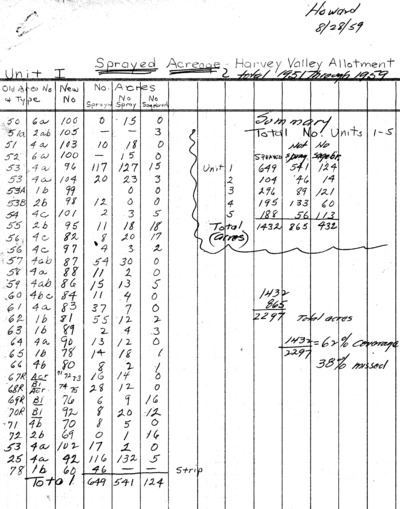 Howard
8/28/59
Sprayed Acreage - Harvey Valley Allotment
Unit I
total 1951 through 1959
Old Area No & Type New No No. Acres
Sprayed No Spray No Sagebrush
50 6a 100 0 15 0
51a 2ab 105 — — 3
51 4a 103 10 18 0
52 6a 100 — 15 0
53 4a 96 117 127 15
53 4a 104 20 23 3
53A 1b 99 0 0
53B 2b 98 12 0 0
54 4c 101 2 3 5
55 2b 95 11 18 18
56 4c 82 8 20 17
56 4c 97 4 3 2
57 4ab 87 54 30 0
58 4a 88 11 2 0
59 4ab 86 15 13 5
60 4bc 84 11 4 0
61 4a 83 37 7 0
62 1b 81 55 12 2
63 1b 89 2 4 3
64 4a 90 13 12 0
65 1b 78 14 18 1
66 4b 80 8 2 0
67R 71 72 73 16 14 0
68R 74 75 28 12 0
69R B1 76 6 9 16
70R B1 92 8 20 12
71 4b 70 8 5 0
72 2b 69 0 1 16
53 4a 102 17 2 0
25 4a 42 116 132 5
78 1b 60 46 — — Strip
Total 649 541 124
Summary
Total No. Units 1-5
Sprayed Not Sprayed No Sagebr.
Unit 1 649 541 124
2 104 46 14
3 296 89 121
4 195 133 60
5 188 56 113
Total (acres) 1432 865 432
1432
865
2297 Total acres
1432 = 62% coverage
2297
38% missed